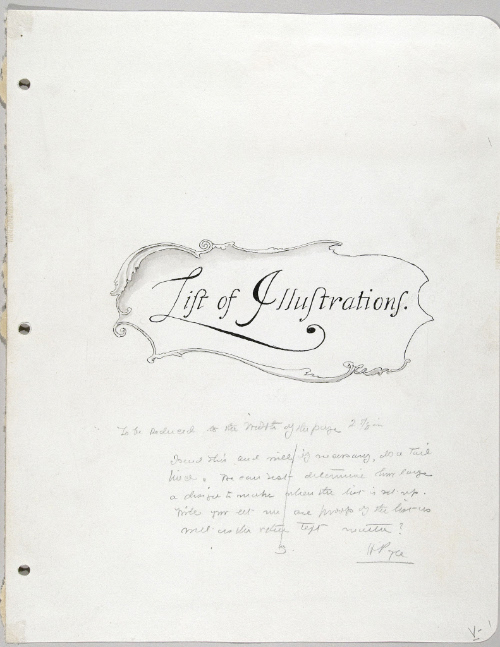 Liſt of Illuſtrationſ.
To be reduced to the width of the page
I send this and will if necessary, do a tail
We can best determine how large
a design to make when the list is set up.
Will you let me see proofs of the list as
well as the other text matter?
HPyle
V-